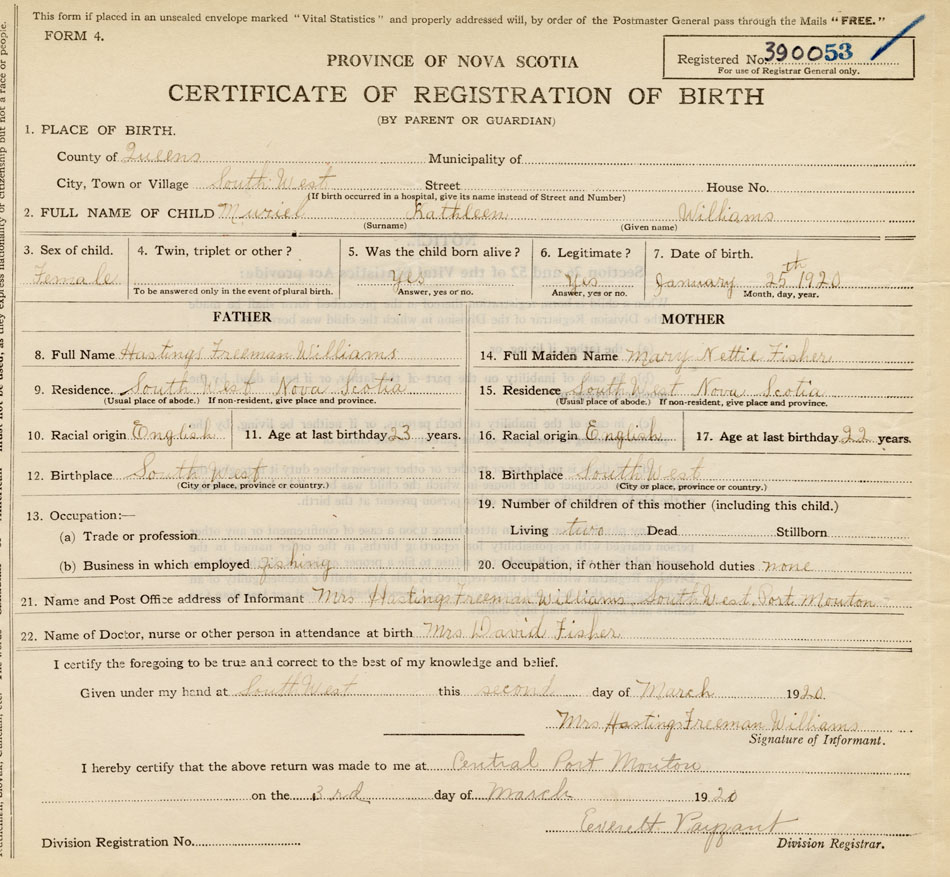 This form if placed in an unsealed envelope marked "Vital Statistics" and properly addressed will, by order of the Postmaster General pass through the Mails "FREE."
FORM 4.
Registered No. 390053
For use of Registrar General only.
PROVINCE OF NOVA SCOTIA
CERTIFICATE OF REGISTRATION OF BIRTH
(BY PARENT OR GUARDIAN)
1. PLACE OF BIRTH.
County of Queens Municipality of
City, Town or Village South West Street House No.
(If birth occurred in a hospital, give its name instead of Street and Number)
2. FULL NAME OF CHILD Muriel Kathleen Williams
(Surname) (Given name)
3. Sex of child. 4. Twin, triplet or other? 5. Was the child born alive? 6. Legitimate? 7. Date of birth.
Female Yes Yes January 25th 1920
To be answered only in the event of plural birth. Answer, yes or no. Answer, yes or no. Month, day, year.
FATHER MOTHER
8. Full Name Hastings Freeman Williams 14. Full Maiden Name Mary Nettie Fisher
9. Residence. South West Nova Scotia 15. Residence South West Nova Scotia
(Usual place of abode.) If non-resident, give place and province. (Usual place of abode.) If non-resident, give place and province.
10. Racial origin English 11. Age at last birthday 23 years. 16. Racial origin English 17. Age at last birthday 22 years.
12. Birthplace South West 18. Birthplace South West
(City or place, province or country.) (City or place, province or country.)
13. Occupation:— 19. Number of children of this mother (including this child.)
(a) Trade or profession Living two Dead Stillborn
(b) Business in which employed fishing 20. Occupation, if other than household duties none
21. Name and Post Office address of Informant Mrs Hastings Freeman Williams South West Port Mouton
22. Name of Doctor, nurse or other person in attendance at birth Mrs David Fisher
I certify the foregoing to be true and correct to the best of my knowledge and belief.
Given under my hand at South West this second day of March 1920
Mrs Hastings Freeman Williams
Signature of Informant.
I hereby certify that the above return was made to me at Central Port Mouton
on the 3rd day of March 1920
Everett Payzant
Division Registration No. Division Registrar.